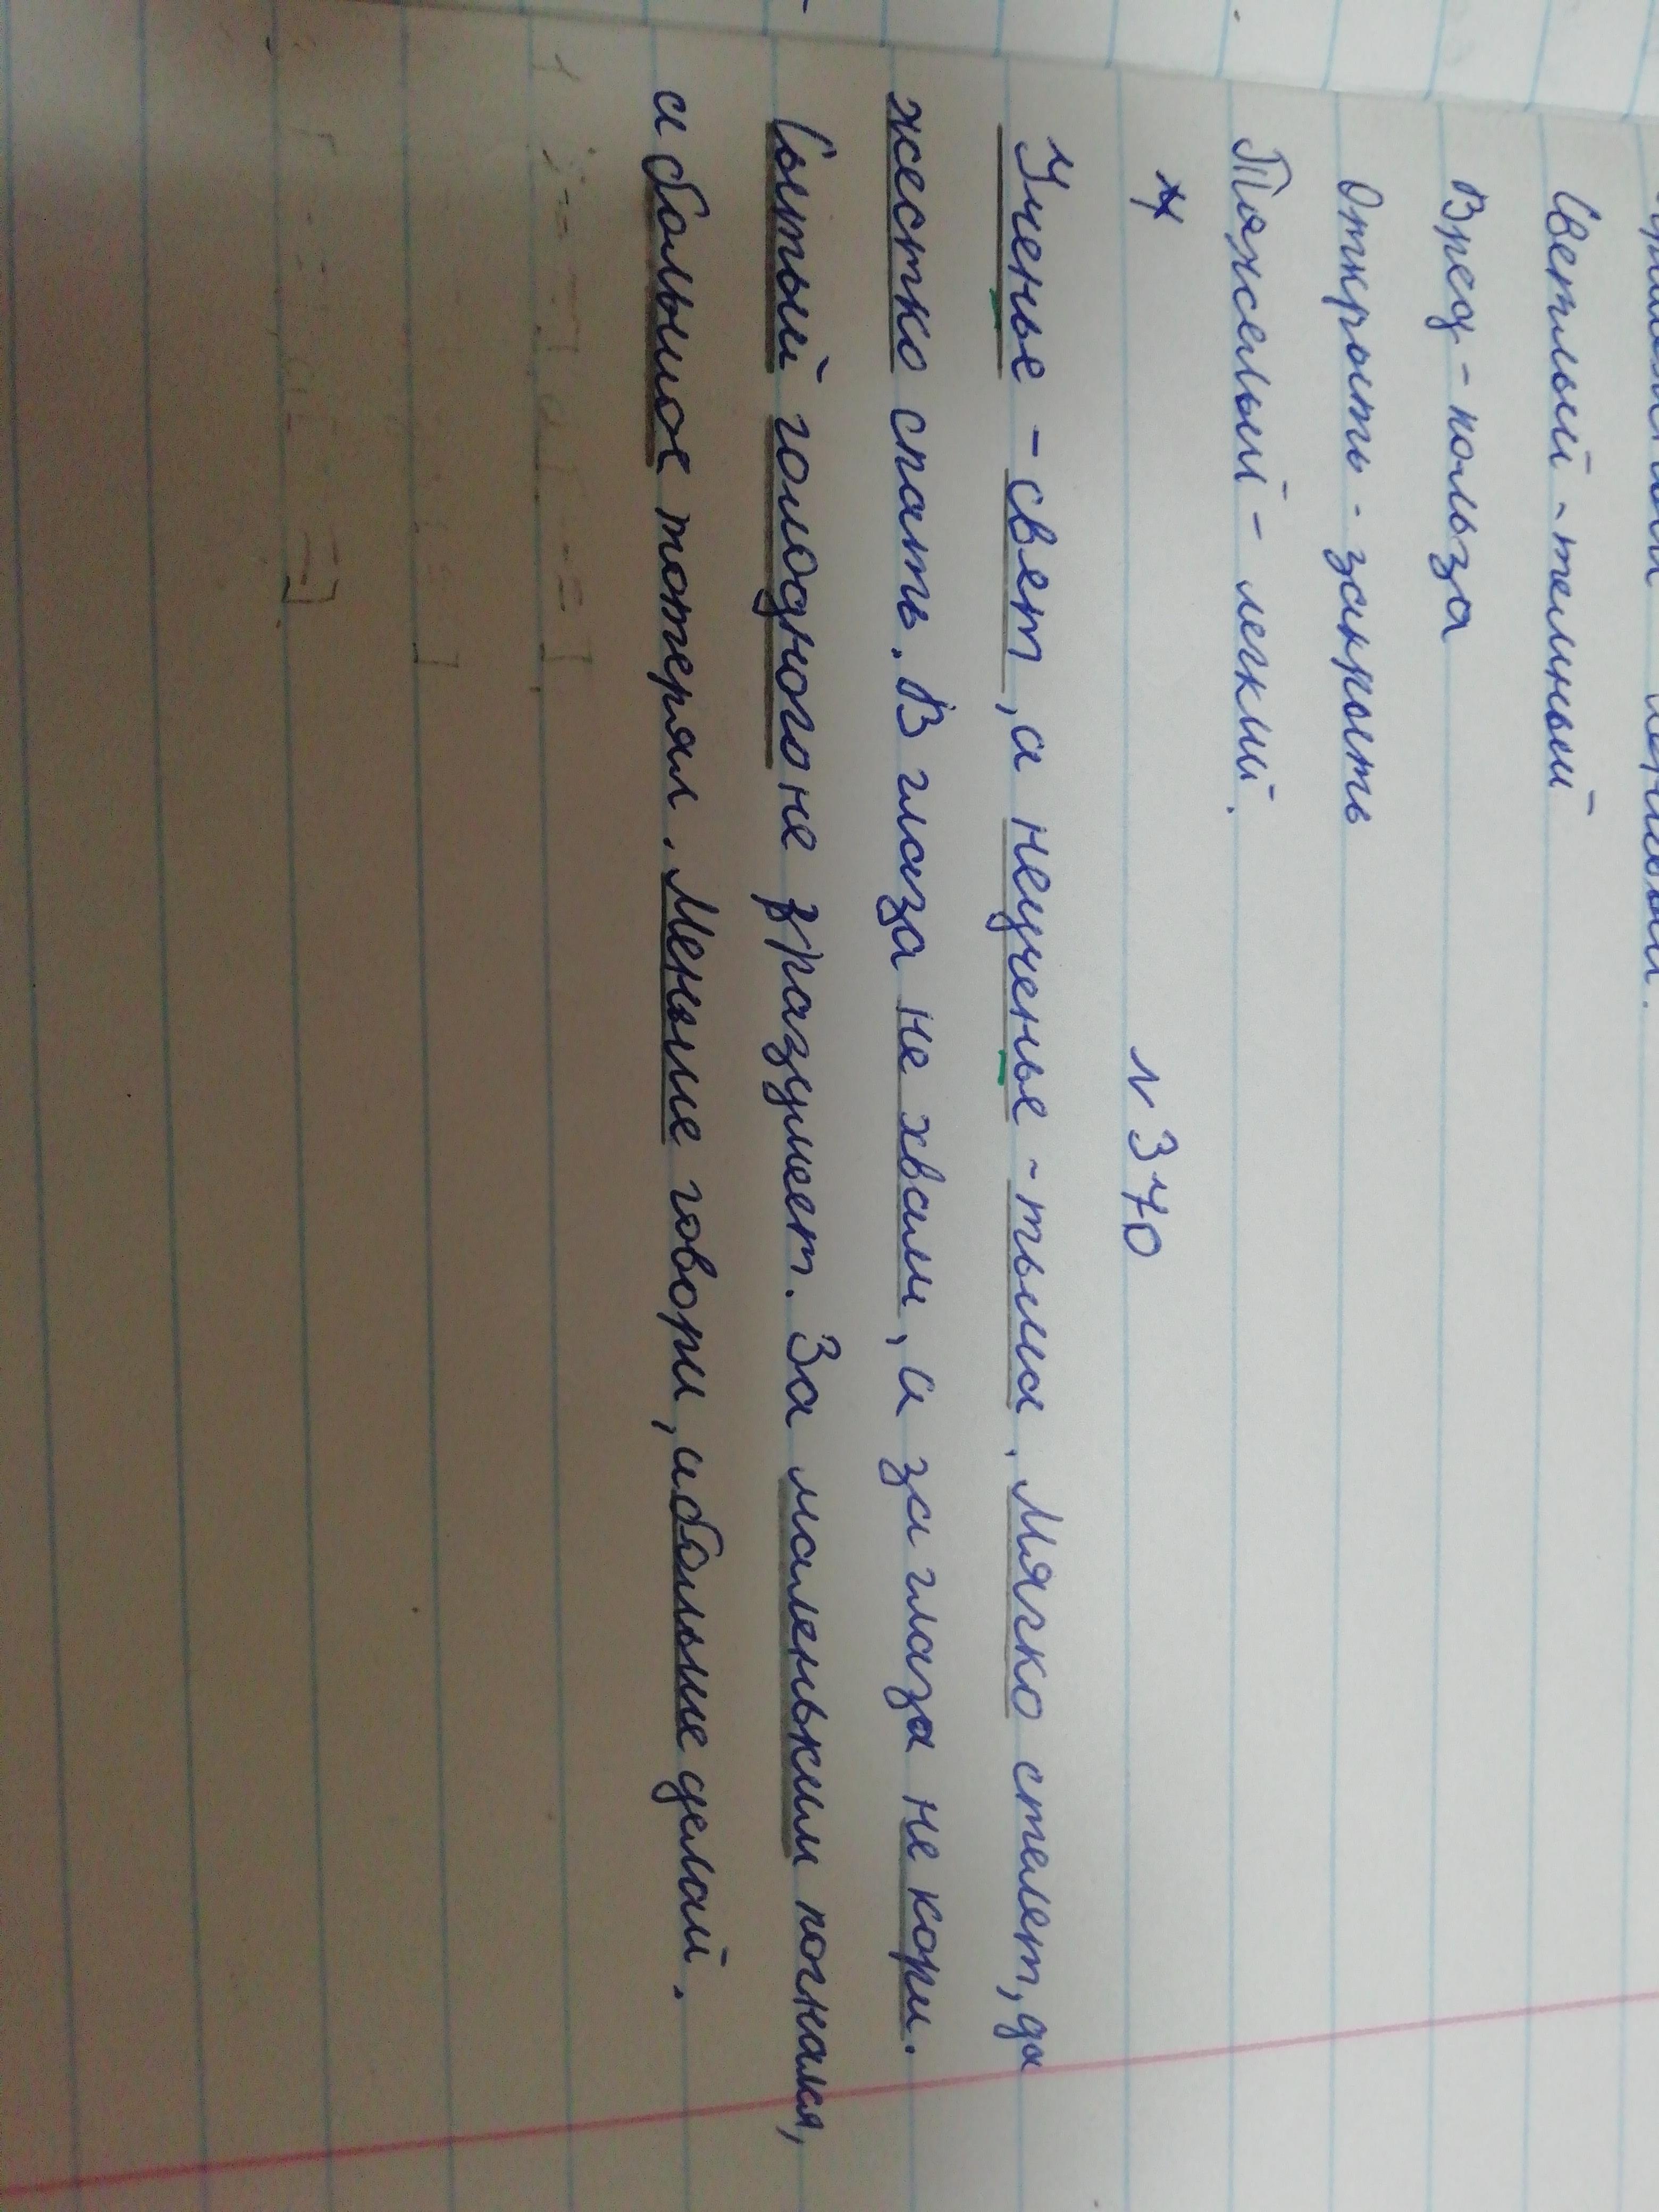 Светлый - темный
Вред - польза
Открыть - закрыть
Тяжелый - легкий.
N 370
Ученье - свет, а неученье - тьма. Мягко стелет, да
жестко спать. В глаза не хвали, и за глаза не кори.
Сытый голодного не разумеет. За маленьким погнался,
и большое потерял. Меньше говори, и больше делай.